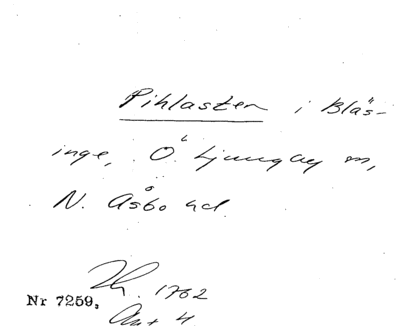 Pihlasten i Bläs-
inge, Ö. Ljungby sn,
N. Åsbo hd.
1762
Nr 7259.
Akt 4